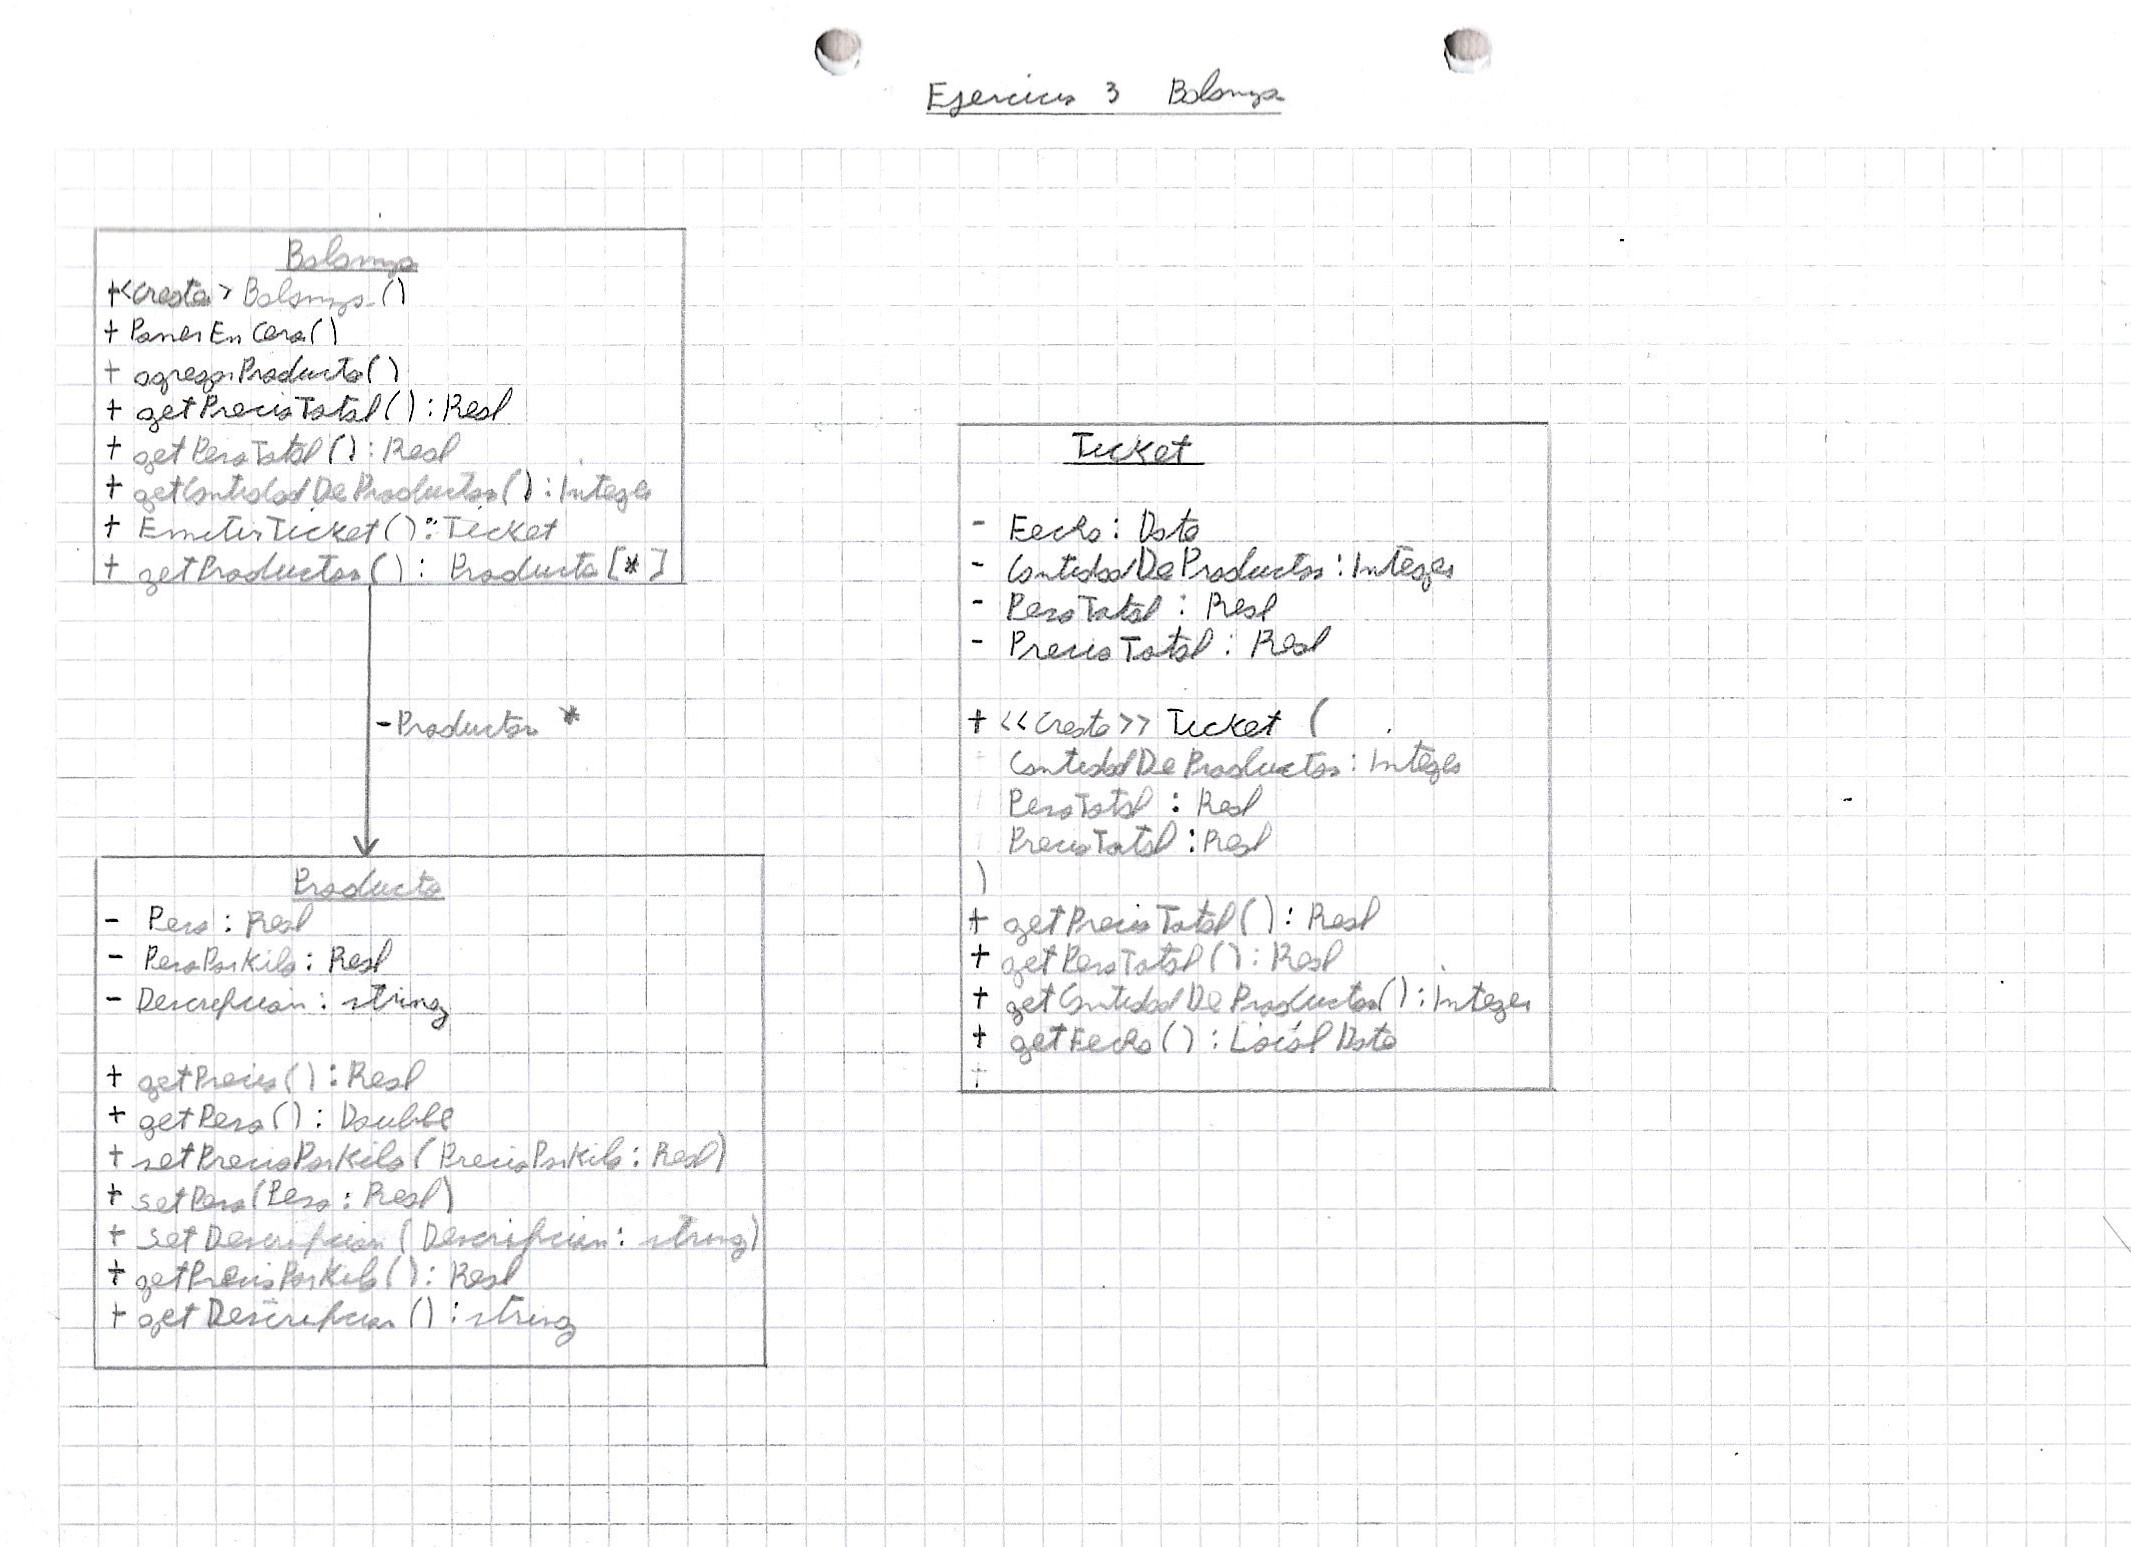 Ejercicio 3 Balanza
Balanza
+<create> Balanza()
+ PonerEnCero()
+ agregarProducto()
+ getPrecioTotal(): Real
+ getPesoTotal(): Real
+ getCantidadDeProductos(): Integer
+ EmitirTicket(): Ticket
+ getProductos(): Producto[*]
- Productos *
Producto
- Peso: Real
- PesoPorKilo: Real
- Descripcion: string
+ getPrecio(): Real
+ getPeso(): Double
+ setPrecioPorKilo(PrecioPorKilo: Real)
+ setPeso(Peso: Real)
+ setDescripcion(Descripcion: string)
+ getPrecioPorKilo(): Real
+ getDescripcion(): string
Ticket
- Fecha: Date
- CantidadDeProductos: Integer
- PesoTotal: Real
- PrecioTotal: Real
+ <<create>> Ticket (
CantidadDeProductos: Integer
PesoTotal: Real
PrecioTotal: Real
)
+ getPrecioTotal(): Real
+ getPesoTotal(): Real
+ getCantidadDeProductos(): Integer
+ getFecha(): Local Date
+